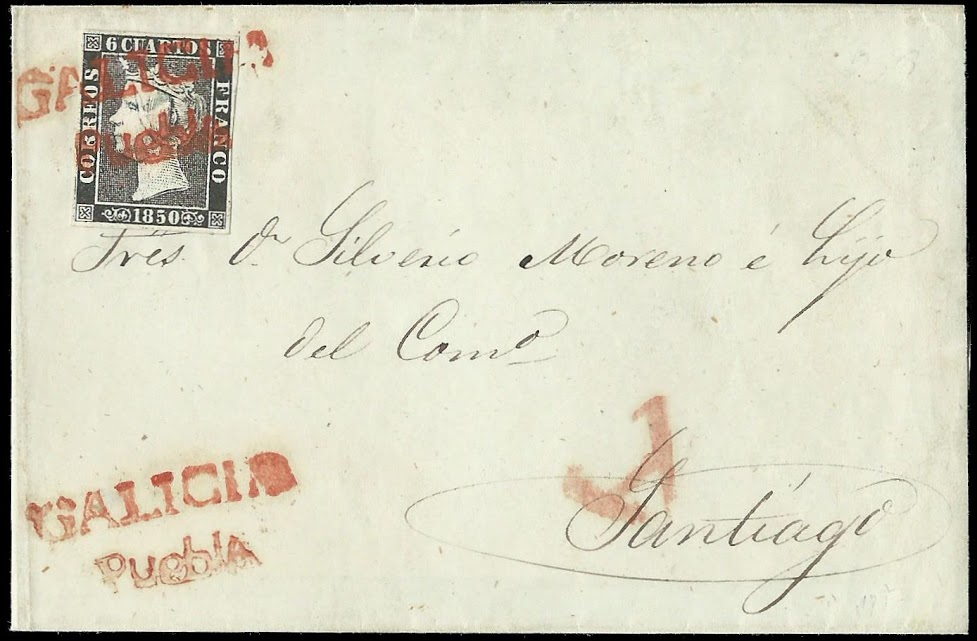 6 CUARTOS
CORREOS
FRANCO
1850
GALICIA
Puebla
Sres. Dn. Silverio Moreno é hijo
del Como
GALICIA
Puebla
Santiago